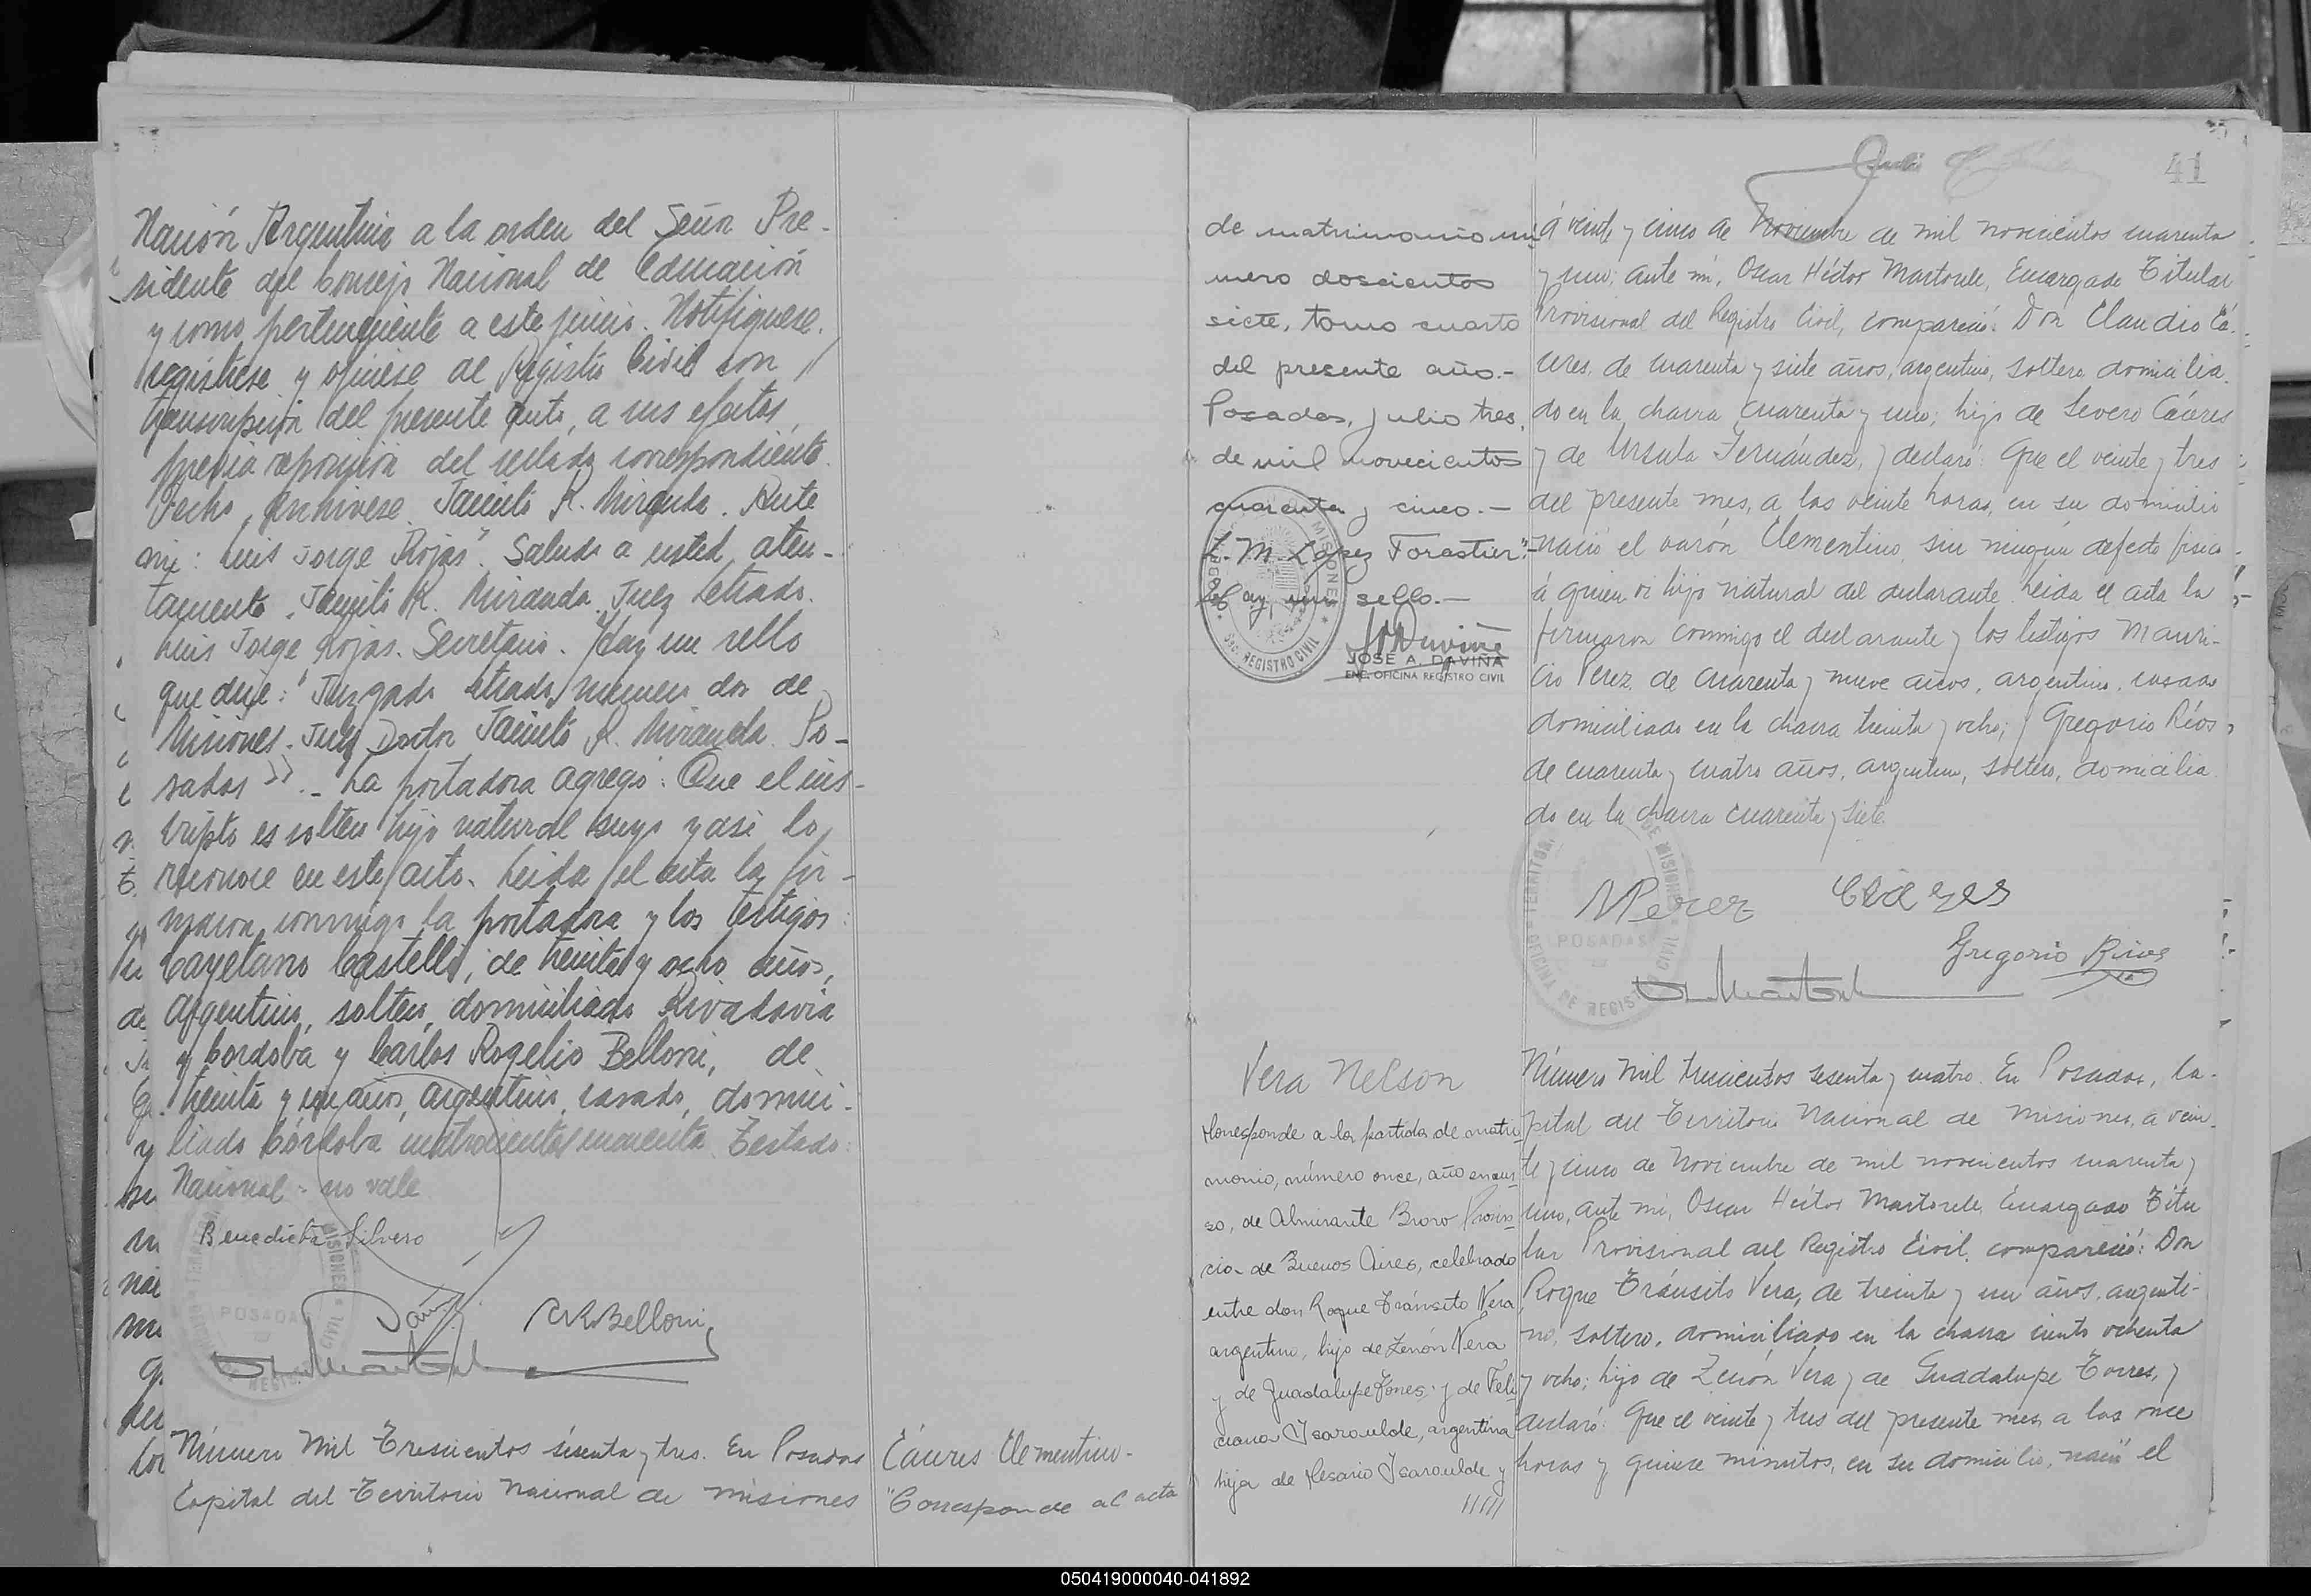 Nación Argentina a la orden del Señor Pre-
sidente del Consejo Nacional de Educación
y como perteneciente a este juicio. Notifíquese.
regístrese y ofíciese al Registro Civil con
transcripción del presente auto, a sus efectos
previa reposición del sellado correspondiente.
Fecho, archívese. Jacinto R. Miranda. Ante
mi: Luis Jorge Rojas". Saludo a usted aten-
tamente. Jacinto R. Miranda. Juez Letrado.
Luis Jorge Rojas. Secretario. Hay un sello
que dice: "Juzgado Letrado número dos de
Misiones. Juez Doctor Jacinto R. Miranda. Po-
sadas". - La portadora agregó: Que el ins-
cripto es soltero hijo natural suyo y así lo
reconoce en este acto. Leida el acta la fir-
maron conmigo la portadora y los testigos:
Cayetano Castelli, de treinta y ocho años,
argentino, soltero, domiciliado Rivadavia
y Cordoba y Carlos Rogelio Belloni, de
treinta y un años, argentino, casado, domici-
liado Córdoba cuatrocientos cuarenta. Testado:
Nacional - no vale
Benedicta Silvero
CRBelloni
POSADAS
Número Mil Trescientos sesenta y tres. En Posadas
Capital del Territorio Nacional de Misiones
Cáceres Clementino.-
"Corresponde al acta
de matrimonio nú
mero doscientos
siete, tomo cuarto
del presente año.-
Posadas, julio tres,
de mil novecientos
cuarenta y cinco.-
L. M. Lopez Forastier".-
Hay un sello.-
JOSE A. DAVIÑA
ENC. OFICINA REGISTRO CIVIL
41
á veinte y cinco de Noviembre de mil novecientos cuarenta
y uno; ante mí, Oscar Héctor Martorele, Encargado Titular
Provisional del Registro Civil, compareció: Don Claudio Cá-
ceres, de cuarenta y siete años, argentino, soltero, domicilia-
do en la chacra cuarenta y uno; hijo de Severo Cáceres
y de Ursula Fernández, y declaró: Que el veinte y tres
del presente mes, a las veinte horas, en su domicilio
nació el varón Clementino, sin ningún defecto físico
á quien dí hijo natural del declarante. Leida el acta la
firmaron conmigo el declarante y los testigos Mauri-
cio Perez, de cuarenta y nueve años, argentino, casado
domiciliado en la chacra treinta y ocho; y Gregorio Ríos,
de cuarenta y cuatro años, argentino, soltero, domicilia-
do en la chacra cuarenta y siete.
MPerez
Gregorio Rios
POSADAS
Vera Nelson
Corresponde a la partida de matri
monio, número once, año en cur
so, de Almirante Brown Provin
cia de Buenos Aires, celebrado
entre don Roque Tránsito Vera
argentino, hijo de Zenón Vera
y de Guadalupe Torres; y de Feli
ciana Isaroulde, argentina
hija de Cesario Isaroulde y
Número Mil trescientos sesenta y cuatro. En Posadas, Ca-
pital del Territorio Nacional de Misiones, a vein-
te y cinco de Noviembre de mil novecientos cuarenta y
uno, ante mí, Oscar Héctor Martorele, Encargado Titu
lar Provisional del Registro Civil, compareció: Don
Roque Tránsito Vera, de treinta y un años, argenti-
no, soltero, domiciliado en la chacra ciento ochenta
y ocho; hijo de Zenón Vera y de Guadalupe Torres, y
declaró: Que el veinte y tres del presente mes, a las once
horas y quince minutos, en su domicilio, nació el
050419000040-041892